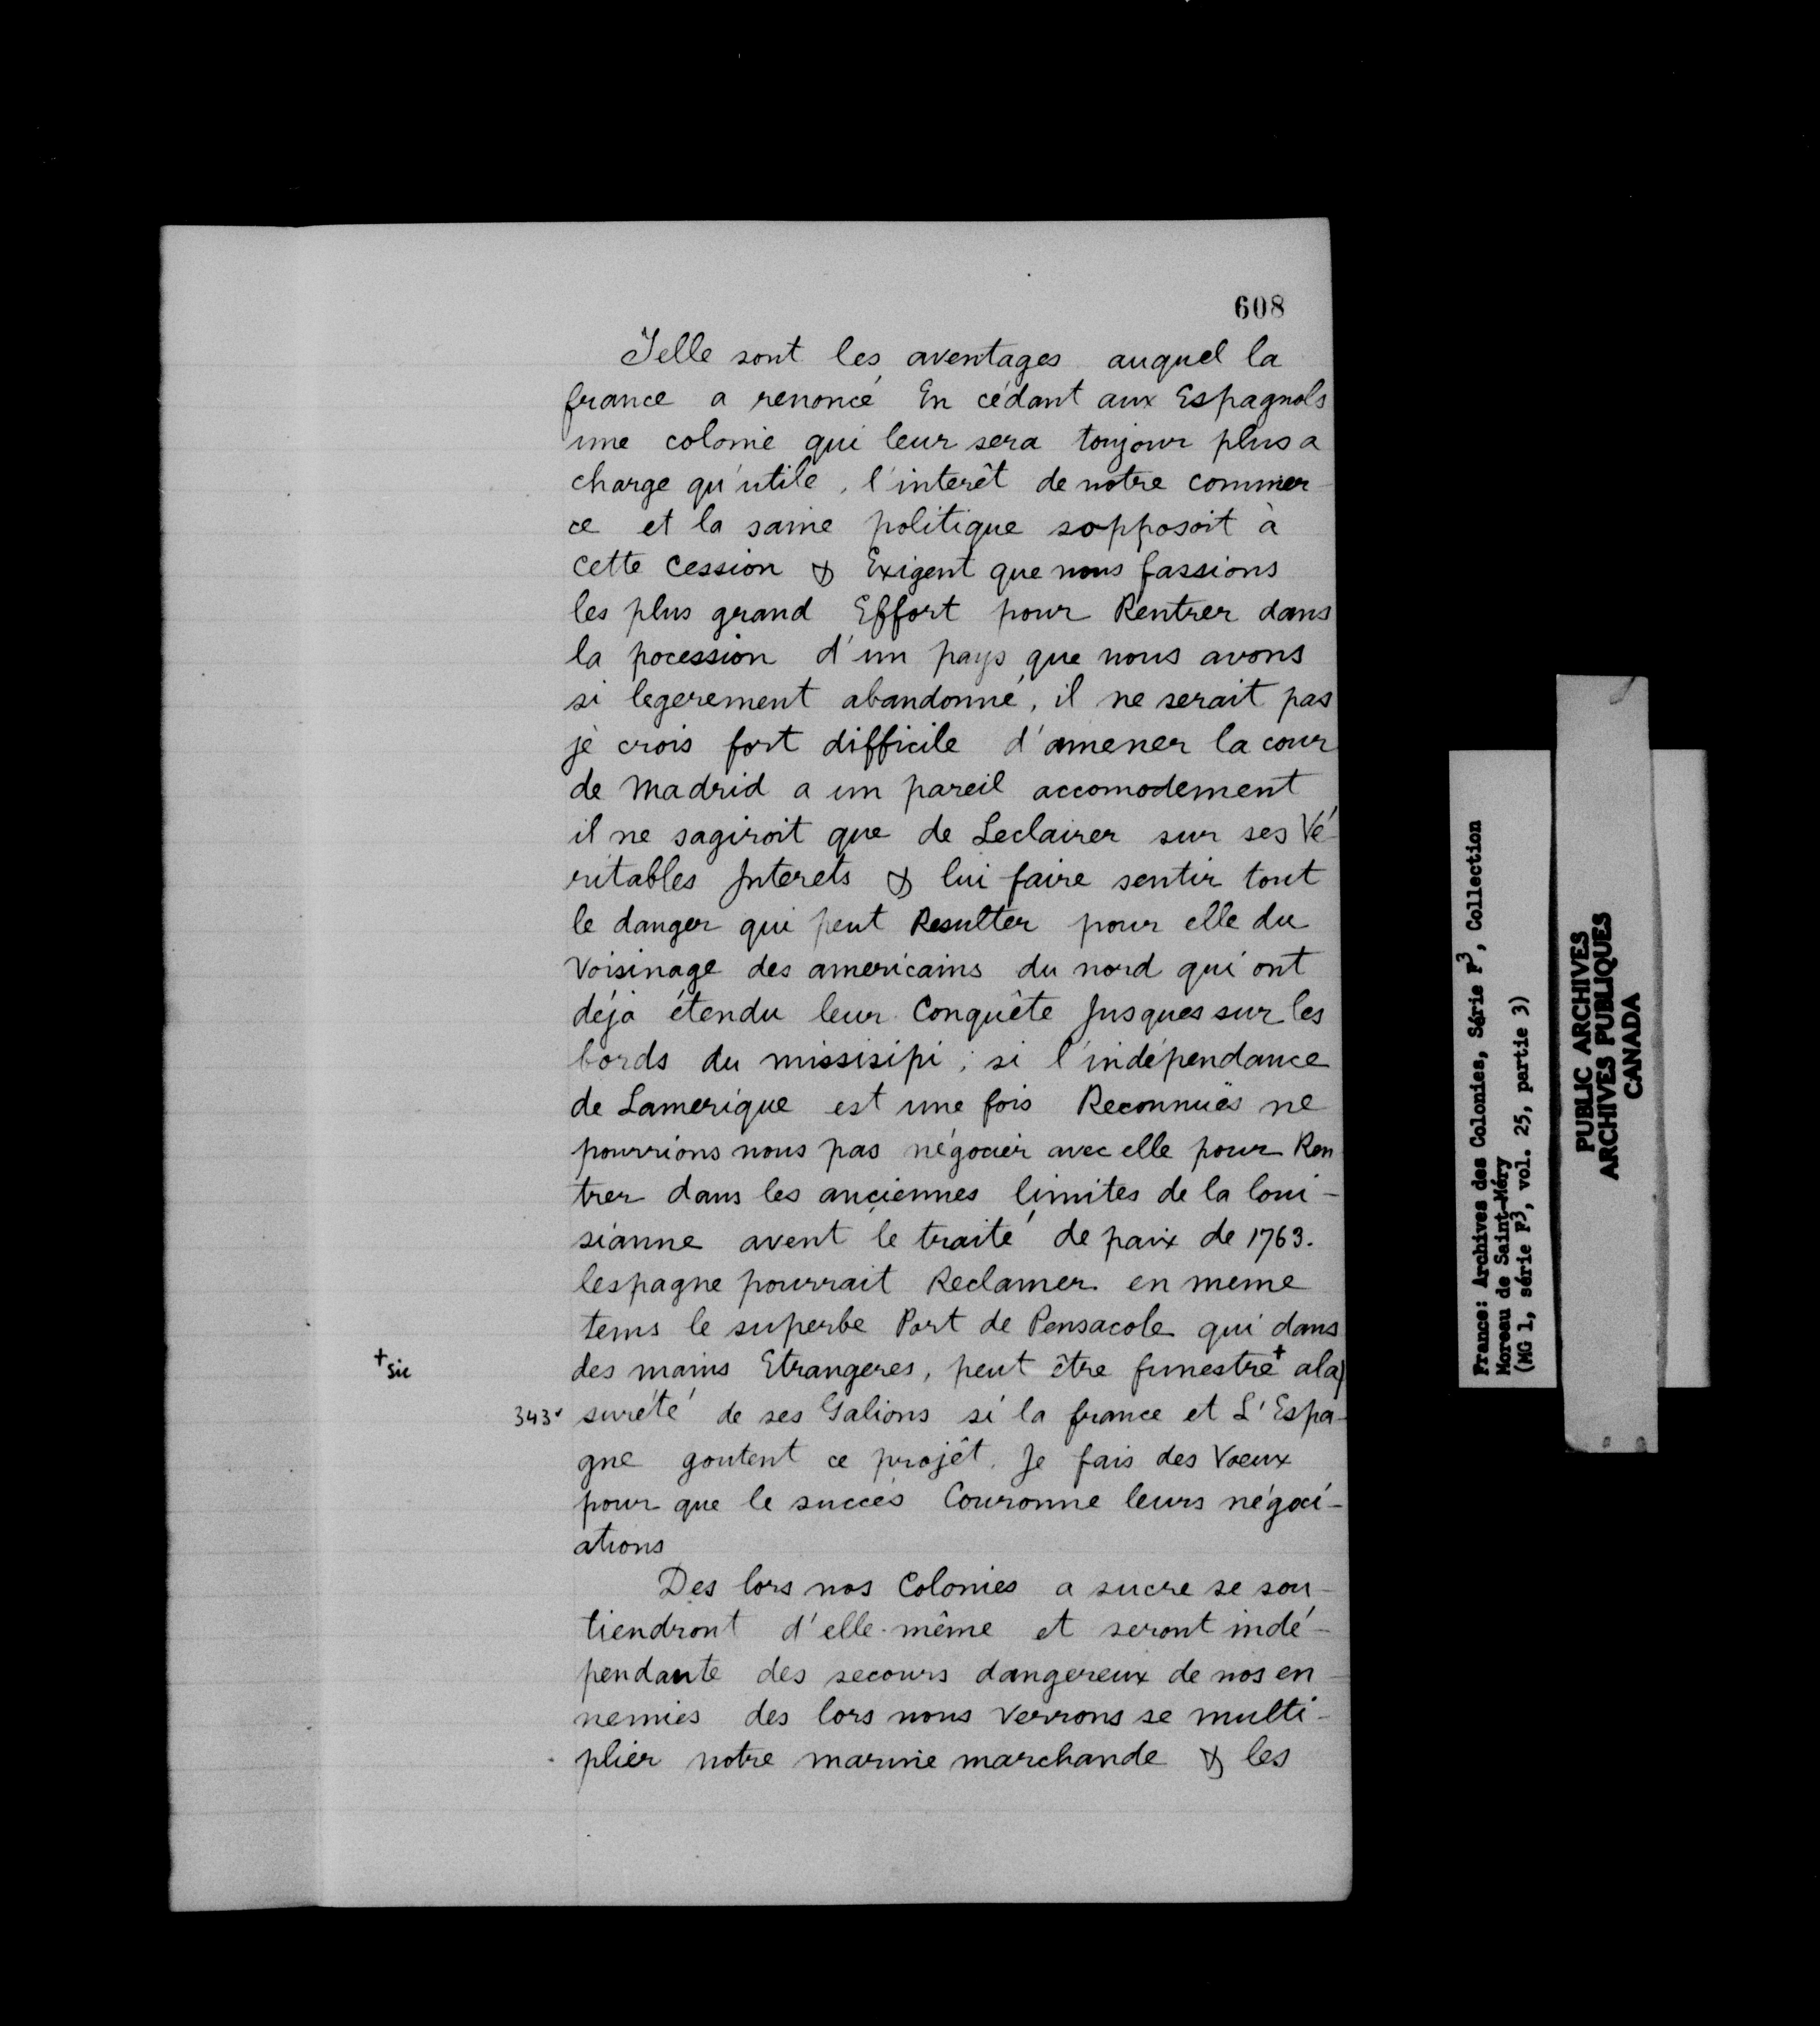 608
Telle sont les aventages auquel la
france a renoncé En cédant aux Espagnols
une colonie qui leur sera toujour plus a
charge qu'utile, l'interêt de notre commer-
ce et la saine politique sopposoit à
cette Cession & Exigent que nous fassions
les plus grand Effort pour Rentrer dans
la pocession d'un pays que nous avons
si legerement abandonné, il ne serait pas
je crois fort difficile d'amener la cour
de Madrid a un pareil accomodement
il ne sagiroit que de Leclairer sur ses Vé-
ritables Interets & lui faire sentir tout
le danger qui peut Resulter pour elle du
Voisinage des americains du nord qui ont
déja étendu leur Conquête Jusques sur les
bords du missisipi ; si l'indépendance
de Lamerique est une fois Reconnuës ne
pourrions nous pas négocier avec elle pour Ren
trer dans les anciennes limites de la loui-
sianne avent le traité de paix de 1763.
lespagne pourrait Reclamer en meme
tems le superbe Port de Pensacole qui dans
+ sic
des mains Etrangeres, peut être funestre+ ala
343v
sureté de ses Galions si la france et L'Espa-
gne goutent ce projêt. Je fais des Voeux
pour que le succès Couronne leurs négoci-
ations
Des lors nos Colonies a sucre se sou-
tiendront d'elle-même et seront indé-
pendante des secours dangereux de nos en-
nemies des lors nous verrons se multi-
plier notre marine marchande & les
France: Archives des Colonies, Série F3, Collection
Moreau de Saint-Méry
(MG 1, série F3, vol. 25, partie 3)
PUBLIC ARCHIVES
ARCHIVES PUBLIQUES
CANADA